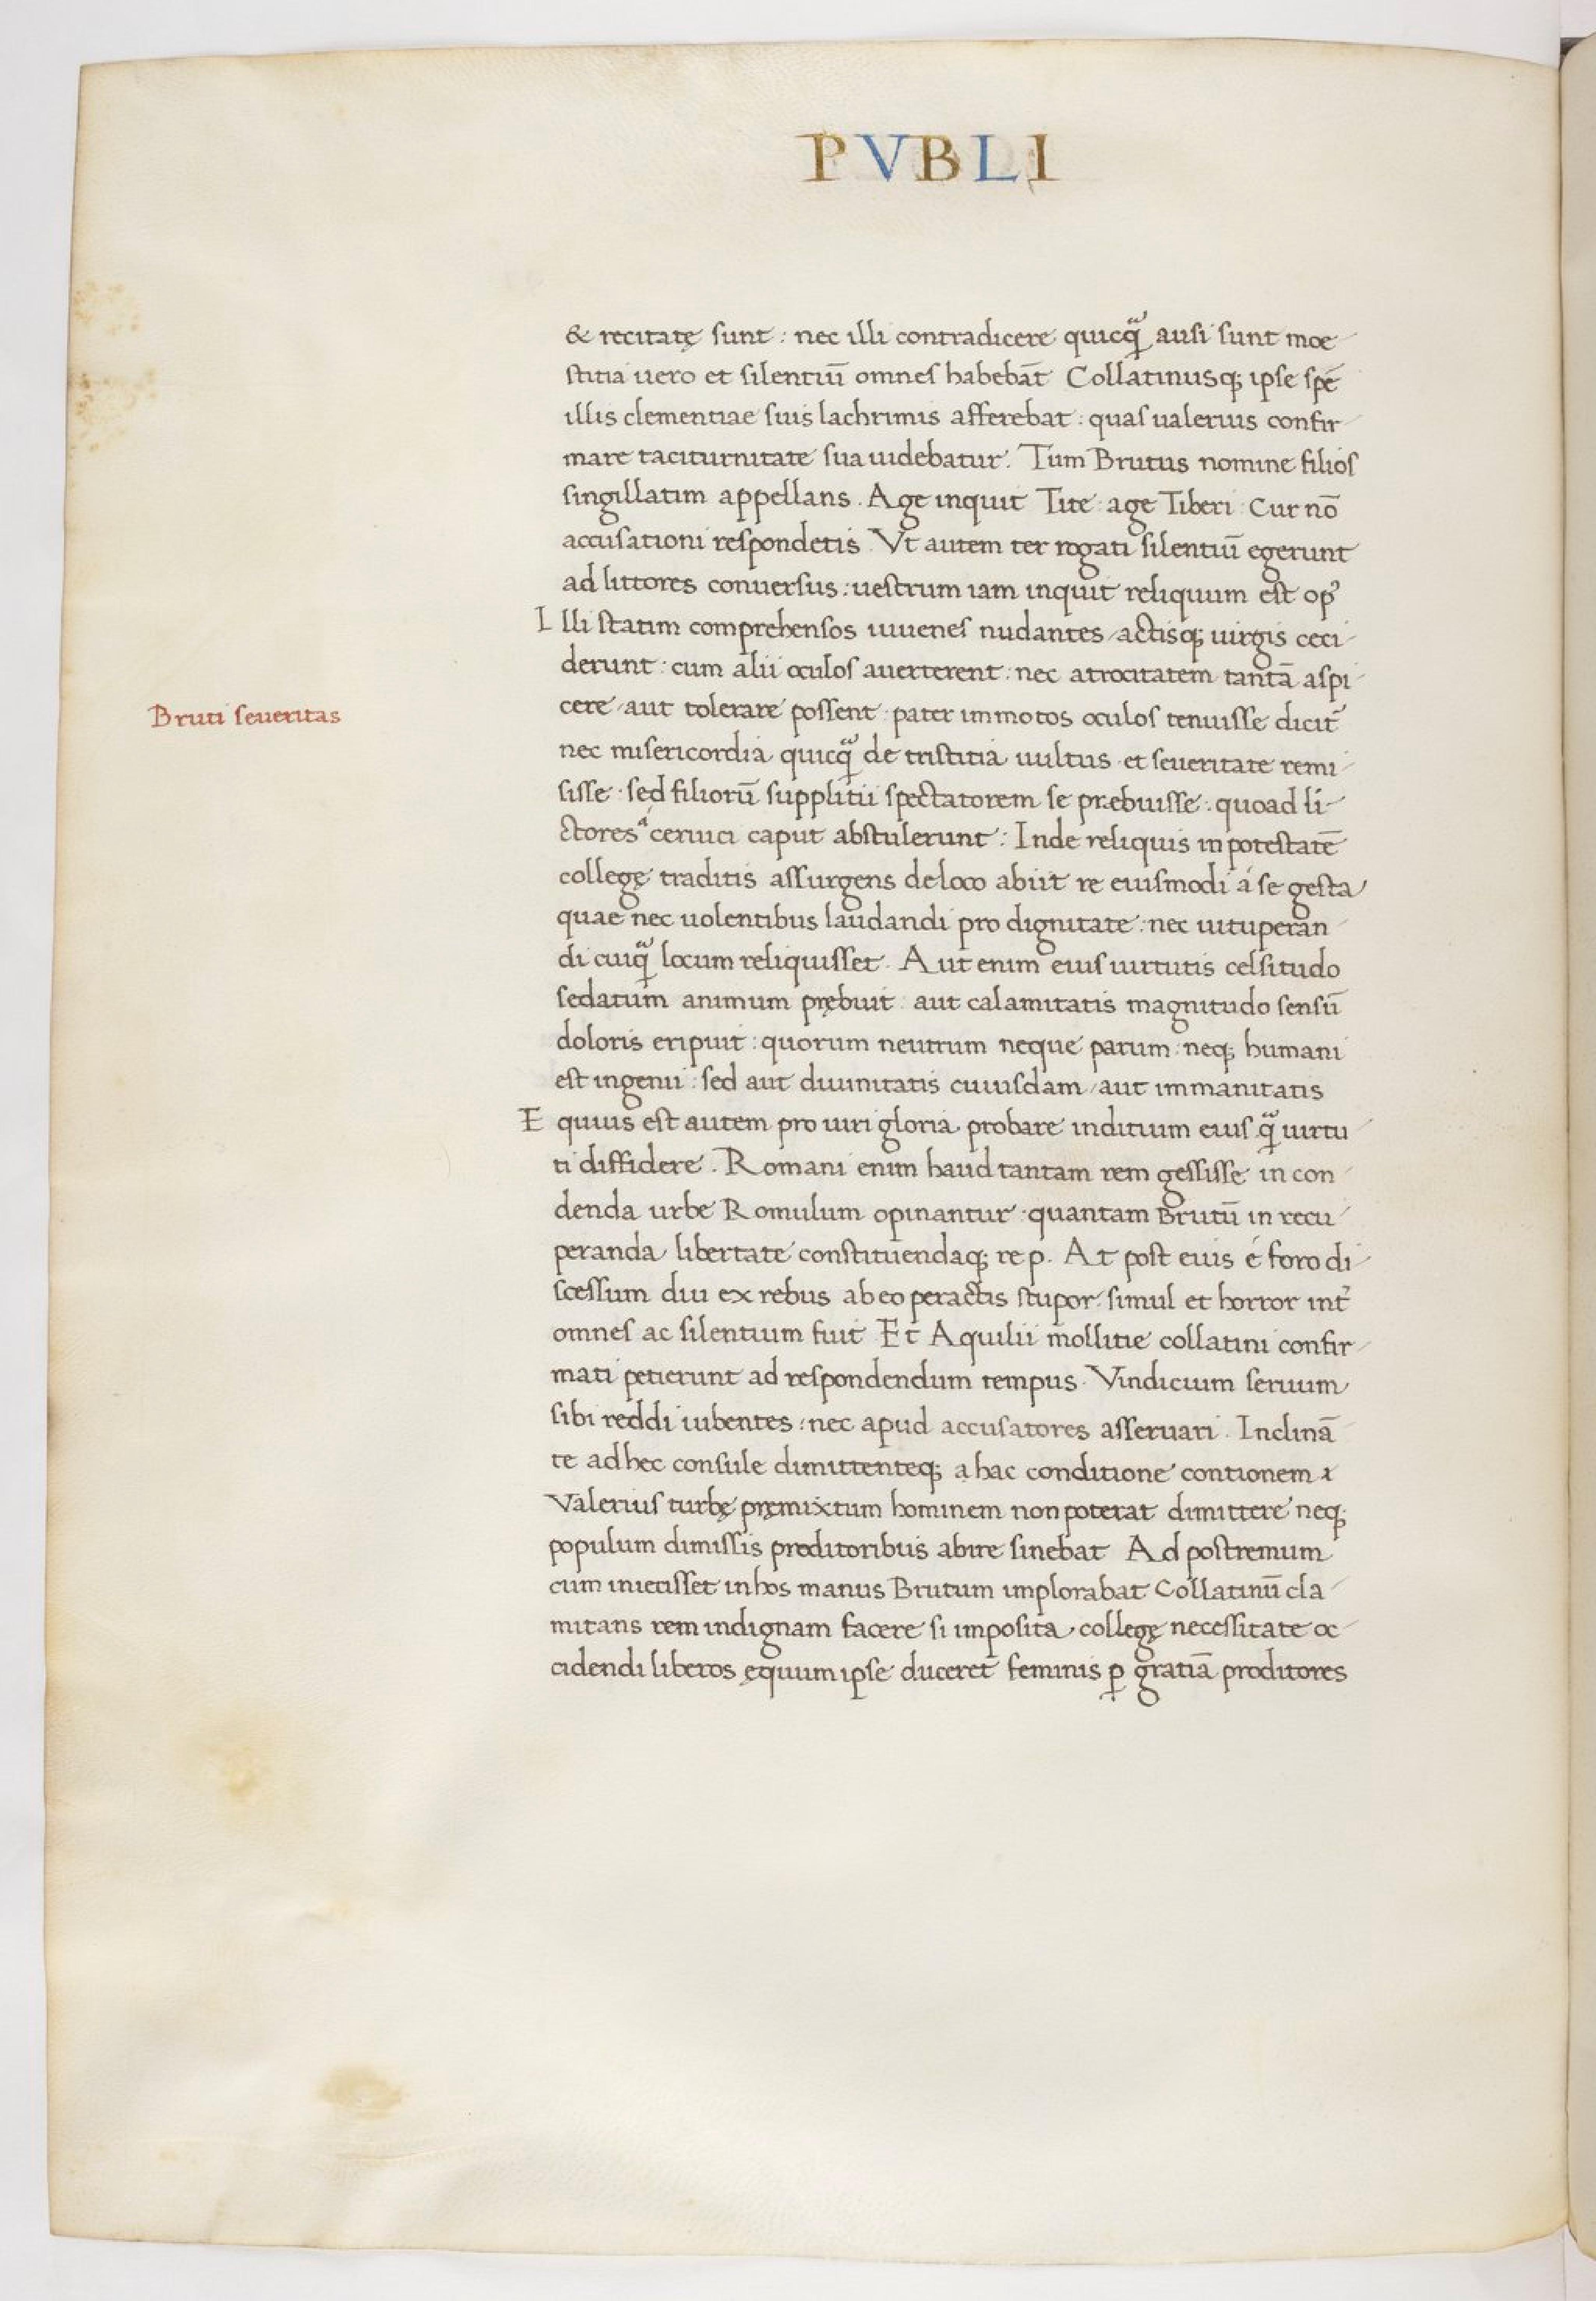 PVBLI
& recitatę sunt : nec illi contradicere quicq̃ ausi sunt moe-
stitia uero et silentiū omnes habebāt Collatinusq; ipse spē
illis clementiae suis lachrimis afferebat : quas ualerius confir-
mare taciturnitate sua uidebatur. Tum Brutus nomine filios
singillatim appellans. Age inquit Tite : age Tiberi : Cur nō
accusationi respondetis. Vt autem ter rogati silentiū egerunt
ad littores conuersus : uestrum iam inquit reliquum est opꝰ
Illi statim comprehensos iuuenes nudantes / actisq; uirgis ceci-
derunt : cum alii oculos auerterent : nec atrocitatem tantā aspi-
cere / aut tolerare possent : pater immotos oculos tenuisse dicit̃
Bruti seueritas
nec misericordia quicq̃ de tristitia uultus et seueritate remi-
sisse : sed filiorū supplitii spectatorem se præbuisse : quoad li-
ctores á ceruici caput abstulerunt : Inde reliquis in potestatē
collegę traditis assurgens de loco abiit re euismodi á se gesta
quae nec uolentibus laudandi pro dignitate : nec uituperan-
di cuiq̃ locum reliquisset. Aut enim eius uirtutis celsitudo
sedatum animum prębuit : aut calamitatis magnitudo sensū
doloris eripuit : quorum neutrum neque parum : neq; humani
est ingenii : sed aut diuinitatis cuiusdam / aut immanitatis
Equius est autem pro uiri gloria probare inditium eius q̃ uirtu-
ti diffidere. Romani enim haud tantam rem gessisse in con-
denda urbe Romulum opinantur : quantam Brutū in recu-
peranda libertate constituendaq; re p. At post euis é foro di-
scessum diu ex rebus ab eo peractis stupor simul et horror int̃
omnes ac silentium fuit Et Aquilii mollitie collatini confir-
mati petierunt ad respondendum tempus. Vindicium seruum
sibi reddi iubentes : nec apud accusatores asseruari. Inclinā-
te ad hec consule dimittenteq; a hac conditione contionem
Valerius turbę pręmixtum hominem non poterat dimittere neq;
populum dimissis proditoribus abire sinebat Ad postremum
cum iniecisset in hos manus Brutum implorabat Collatinū cla-
mitans rem indignam facere si imposita collegę necessitate oc-
cidendi liberos ęquum ipse duceret feminis ꝑ gratiā proditores